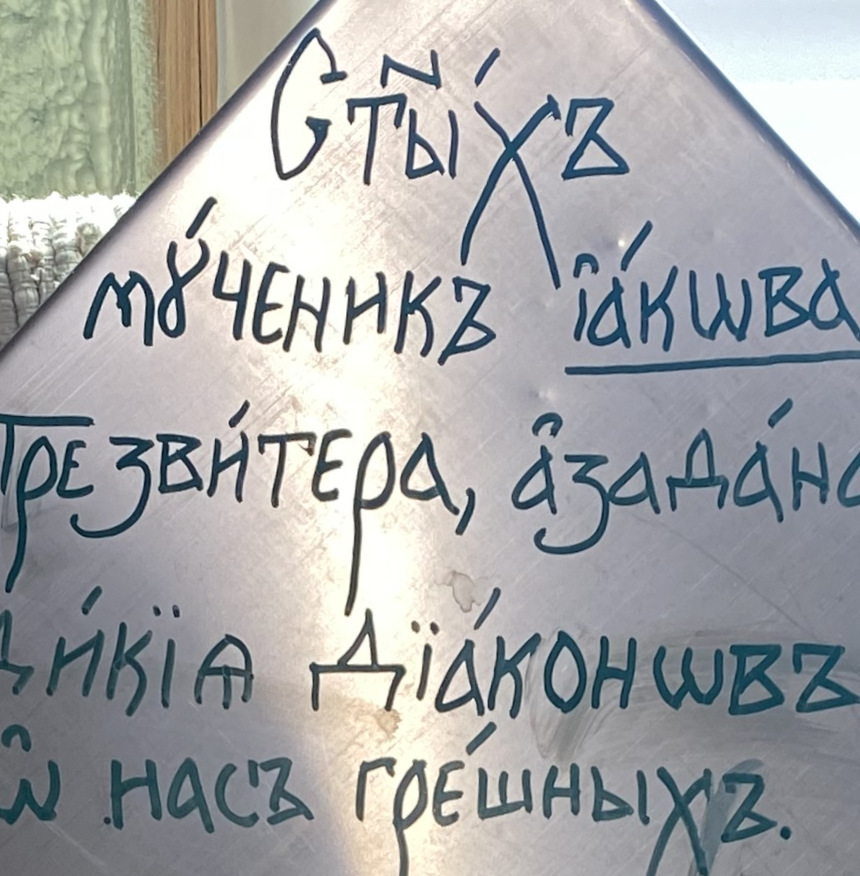 Ст҃ы́хъ
мꙋ́ченикъ і҆а́кѡва
Презви́тера, а҆зада́на
ди́кїѧ дїа́конѡвъ
ѡ҆ насъ гре́шныхъ.